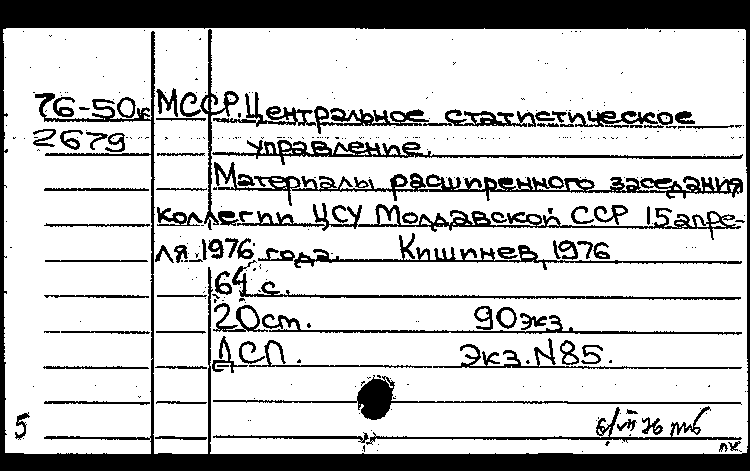 76-50к МССР. Центральное статистическое
2679 управление.
Материалы расширенного заседания
коллегии ЦСУ Молдавской ССР 15 апре-
ля 1976 года. Кишинев, 1976.
64 с.
20 ст. 90 экз.
ДСП. Экз. N 85.
5 6/VII 76